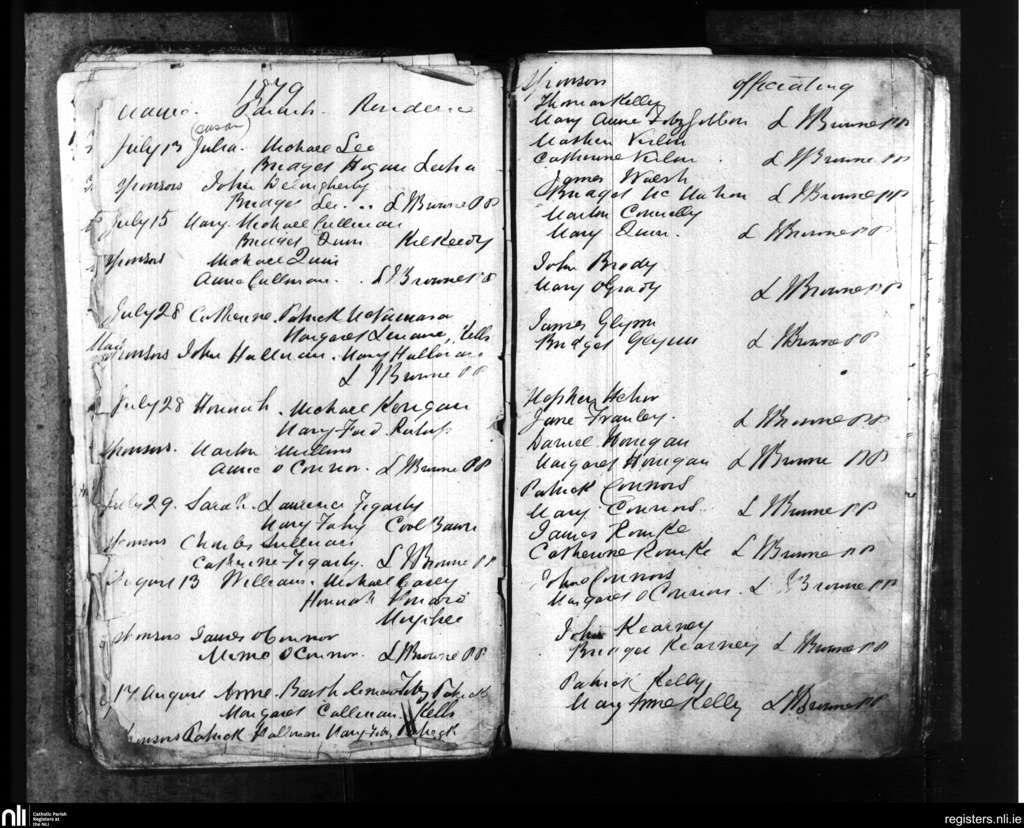 1879
Name. Parents. Residence
July 13 Julia. Michael Lee
Bridget Hogan
Sponsors John
Bridget Lee .. L J Browne PP
July 15 Mary. Michael Cullinan
Bridget Quin Kilkeedy
Sponsors Michael Quin
Anne Cullinan. . L J Browne PP
July 28 Catherine. Patrick McNamara
Margaret Kells
Sponsors John Hallinan. Mary Hallinan
L J Browne PP
July 28 Honnah. Michael Kerigan
Mary Ford
Sponsors. Martin Mullins
Annie O Connor. L J Browne PP
July 29. Sarah. Laurence Fogarty
Mary Fahy Cool Bawn
Sponsors Charles Sullivan
Catherine Fogarty. L J Browne PP
August 13 William. Michael Casey
Honnah
Sponsors James O Connor
O Connor. L J Browne PP
17 August Anne. Fitz Patrick
Margaret Cullinan. Kells
Sponsors Patrick Mary Fitz Patrick
Sponsors officiating
Thomas Kelly
Mary Anne Fitzgibbon L J Browne PP
Mathew
Catherine L J Browne PP
James Walsh
Bridget McMahon L J Browne PP
Martin Connelly
Mary Quin. L J Browne PP
John Brody
Mary O Grady L J Browne PP
James Glynn
Bridget Glynn L J Browne PP
Stephen Hehir
Jane Frawley. L J Browne PP
Daniel Honigan
Margaret Honigan L J Browne PP
Patrick Connors
Mary Connors. L J Browne PP
James Rourke
Catherine Rourke L J Browne PP
John Connors
Margaret O Connors. L J Browne PP
John Kearney
Bridget Kearney L J Browne PP
Patrick Kelly
Mary Anne Kelly L J Browne PP
nli Catholic Parish
Registers at
the NLI
registers.nli.ie